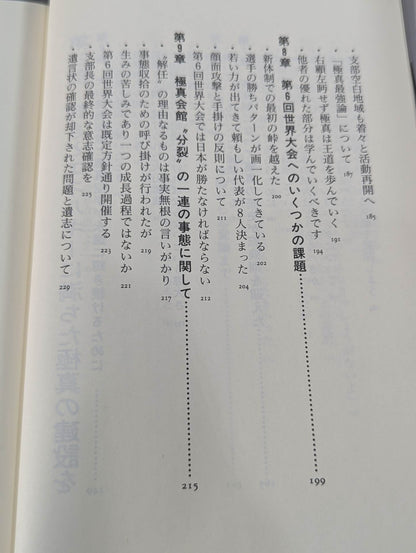 ・支部空白地域も着々と活動再開へ 185
・「極真最強論」について 187
・右顧左眄せず極真は王道を歩んでいく 191
・他者の優れた部分は学んでいくべきです 194
第8章 第6回世界大会へのいくつかの課題 199
・新体制での最初の峠を越えた 200
・選手の勝ちパターンが画一化してきている 202
・若い力が出てきて頼もしい代表が8人決まった 204
・顔面攻撃と手掛けの反則について 211
・第6回世界大会では日本が勝たなければならない 212
第9章 極真会館〝分裂〟の一連の事態に関して 215
・〝解任〟の理由なるものは事実無根の言いがかり 217
・事態収拾のための呼び掛けが行われたが 219
・生みの苦しみであり一つの成長過程ではないか 221
・第6回世界大会は既定方針通り開催する 223
・支部長の最終的な意志確認を 225
・遺言状の確認が却下された問題と遺志について 229